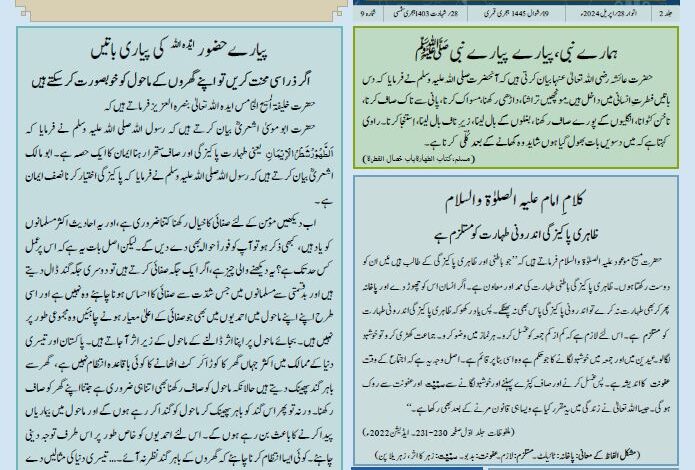 جلد 2
اتوار 28/اپریل 2024ء
19/شوال 1445 ہجری قمری
28/شہادت 1403 ہجری شمسی
شمارہ 9
ہمارے نبی، پیارے پیارے نبی ﷺ
حضرت عائشہ رضی اللہ تعالیٰ عنہا بیان کرتی ہیں کہ آنحضرت صلی اللہ علیہ وسلم نے فرمایا کہ دس
باتیں فطرت انسانی میں داخل ہیں۔ مونچھیں تراشنا، داڑھی رکھنا، مسواک کرنا، پانی سے ناک صاف کرنا،
ناخن کٹوانا، انگلیوں کے پورے صاف رکھنا، بغلوں کے بال لینا، زیر ناف بال لینا، استنجا کرنا۔ راوی
کہتا ہے کہ میں دسویں بات بھول گیا ہوں شاید وہ کھانے کے بعد کلی کرنا ہے۔
(مسلم، کتاب الطھارۃ باب خصال الفطرۃ)
کلامِ امام علیہ الصلوٰۃ والسلام
ظاہری پاکیزگی اندرونی طہارت کو مستلزم ہے
حضرت مسیح موعود علیہ الصلوٰۃ والسلام فرماتے ہیں کہ ”جو باطنی اور ظاہری پاکیزگی کے طالب ہیں میں ان کو
دوست رکھتا ہوں۔ ظاہری پاکیزگی باطنی طہارت کی ممد اور معاون ہے۔ اگر انسان اس کو چھوڑ دے اور پاخانہ
پھر کر بھی طہارت نہ کرے تو اندرونی پاکیزگی پاس بھی نہ پھٹکے۔ پس یاد رکھو کہ ظاہری پاکیزگی اندرونی طہارت
کو مستلزم ہے۔ اس لئے لازم ہے کہ کم از کم جمعہ کو غسل کرو۔ ہر نماز میں وضو کرو۔ جماعت کھڑی کرو تو خوشبو
لگا لو۔ عیدین میں اور جمعہ میں خوشبو لگانے کا جو حکم ہے وہ اسی بنا پر قائم ہے۔ اصل وجہ یہ ہے کہ اجتماع کے وقت
عفونت کا اندیشہ ہے۔ پس غسل کرنے اور صاف کپڑے پہننے اور خوشبو لگانے سے سمیت اور عفونت سے روک
ہوگی۔ جیسا اللہ تعالیٰ نے زندگی میں یہ مقرر کیا ہے ویسا ہی قانون مرنے کے بعد بھی رکھا ہے۔“
(ملفوظات جلد اوّل صفحہ 230-231۔ ایڈیشن 2022ء)
(مشکل الفاظ کے معانی: پاخانہ: ٹائیلٹ۔ مستلزم: لازم۔ عفونت: بدبو۔ سمیت: زہر کا اثر، زہریلا پن)
پیارے حضور ایدہ اللہ کی پیاری باتیں
اگر ذرا سی محنت کریں تو اپنے گھروں کے ماحول کو خوبصورت کر سکتے ہیں
حضرت خلیفۃ المسیح الخامس ایدہ اللہ تعالیٰ بنصرہ العزیز فرماتے ہیں کہ
حضرت ابو موسیٰ اشعریؓ بیان کرتے ہیں کہ رسول اللہ صلی اللہ علیہ وسلم نے فرمایا کہ
اَلطَّھُوْرُ شَطْرُ الْاِیْمَانِ یعنی طہارت پاکیزگی اور صاف ستھرا رہنا ایمان کا ایک حصہ ہے۔ ابو مالک
اشعریؓ بیان کرتے ہیں کہ رسول اللہ صلی اللہ علیہ وسلم نے فرمایا کہ پاکیزگی اختیار کرنا نصف ایمان
ہے۔
اب دیکھیں مؤمن کے لئے صفائی کا خیال رکھنا کتنا ضروری ہے، اور یہ احادیث اکثر مسلمانوں
کو یاد ہیں، کبھی ذکر ہو تو آپ کو فوراً حوالہ بھی دے دیں گے۔ لیکن اصل بات یہ ہے کہ اس پر عمل
کس حد تک ہے؟ یہ دیکھنے والی چیز ہے، اگر ایک جگہ صفائی کرتے ہیں تو دوسری جگہ گند ڈال دیتے
ہیں اور بد قسمتی سے مسلمانوں میں جس شدت سے صفائی کا احساس ہونا چاہئے وہ نہیں ہے اور اسی
طرح اپنے اپنے ماحول میں احمدیوں میں بھی جو صفائی کے اعلیٰ معیار ہونے چاہئیں وہ مجموعی طور پر
نہیں ہیں۔ بجائے ماحول پر اپنا اثر ڈالنے کے ماحول کے زیر اثر آ جاتے ہیں۔ پاکستان اور تیسری
دنیا کے ممالک میں اکثر جہاں گھر کا کوڑا کرکٹ اٹھانے کا کوئی باقاعدہ انتظام نہیں ہے، گھر سے
باہر گند پھینک دیتے ہیں حالانکہ ماحول کو صاف رکھنا بھی اتنا ہی ضروری ہے جتنا اپنے گھر کو صاف
رکھنا۔ ورنہ تو پھر اس گند کو باہر پھینک کر ماحول کو گندا کر رہے ہوں گے اور ماحول میں بیماریاں
پیدا کرنے کا باعث بن رہے ہوں گے۔ اس لئے احمدیوں کو خاص طور پر اس طرف توجہ دینی
چاہئے۔ کوئی ایسا انتظام کرنا چاہئے کہ گھروں کے باہر گند نظر نہ آئے۔۔۔ تیسری دنیا کی مثالیں دے